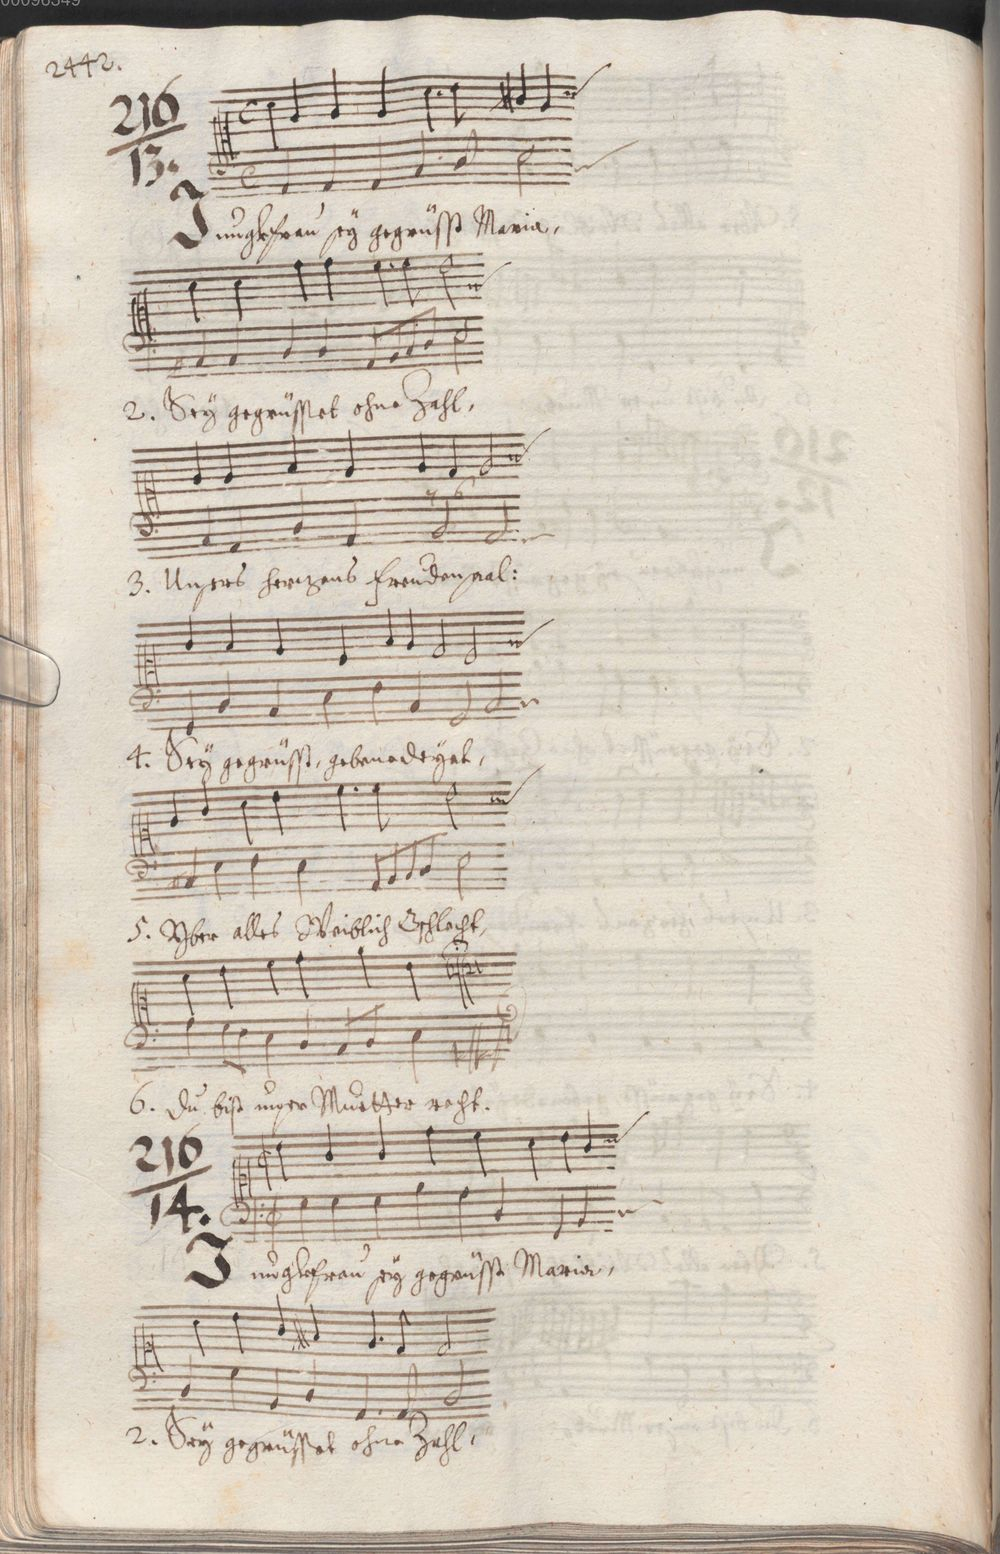 00098349
2442.
216
13.
Jungkfrau sey gegrüsst Maria,
2. Sey gegrüsset ohne Zahl,
7 6
3. Unsers hertzens freudensaal:
4. Sey gegrüsst, gebenedeyet,
5. Yber alles Weiblich Gschlecht,
6. Du bist unser Muetter recht.
216
14.
Jungkfrau sey gegrüsst Maria,
2. Sey gegrüsset ohne Zahl,